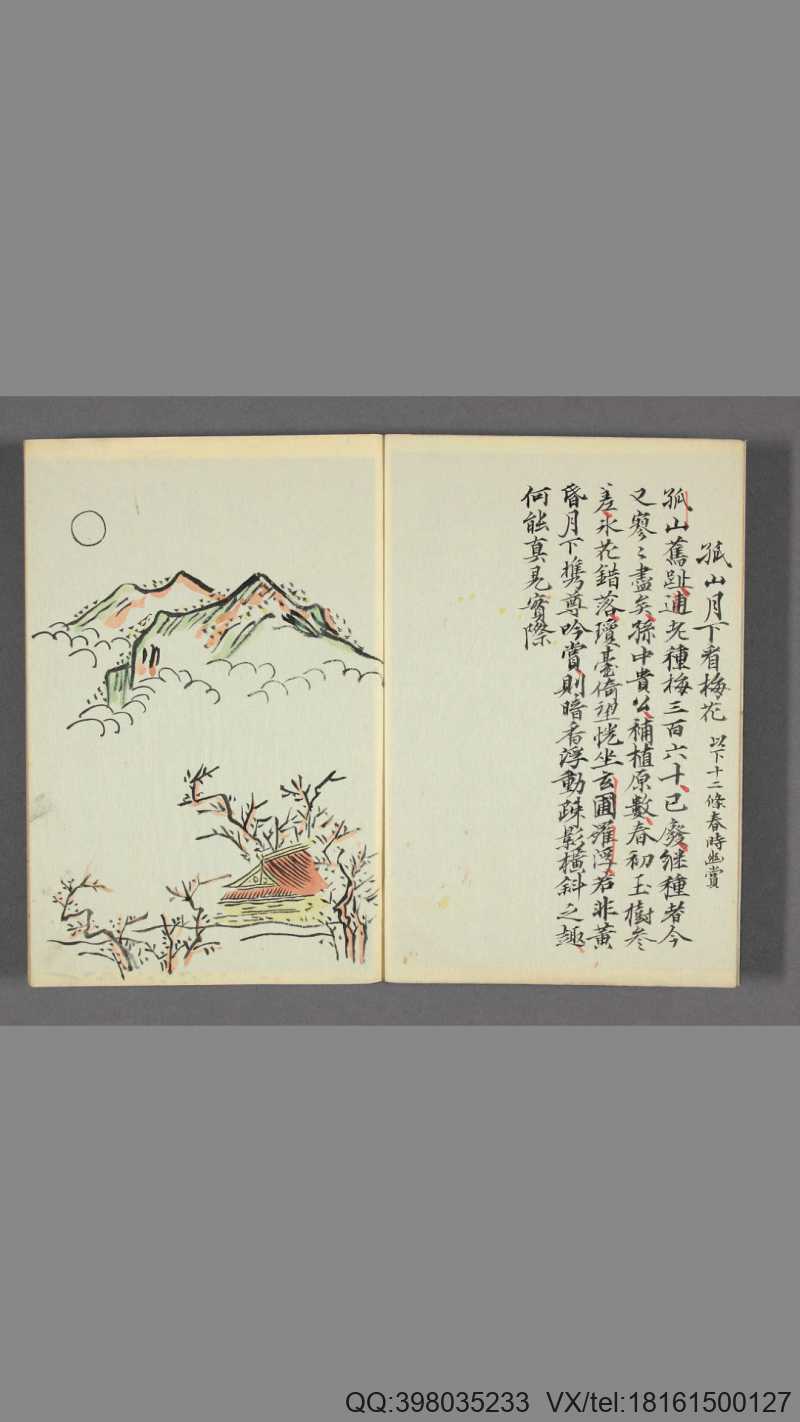 孤山月下看梅花 以下十二條春時幽賞
孤山舊趾逋老種梅三百六十已廢継種者今
又寥〻盡矣孫中貴公補植原數春初玉樹参
差氷花錯落瓊臺倚望恍坐玄圃羅浮若非黄
昏月下携尊吟賞則暗香浮動踈影横斜之趣
何能真見實際
QQ:398035233 VX/tel:18161500127